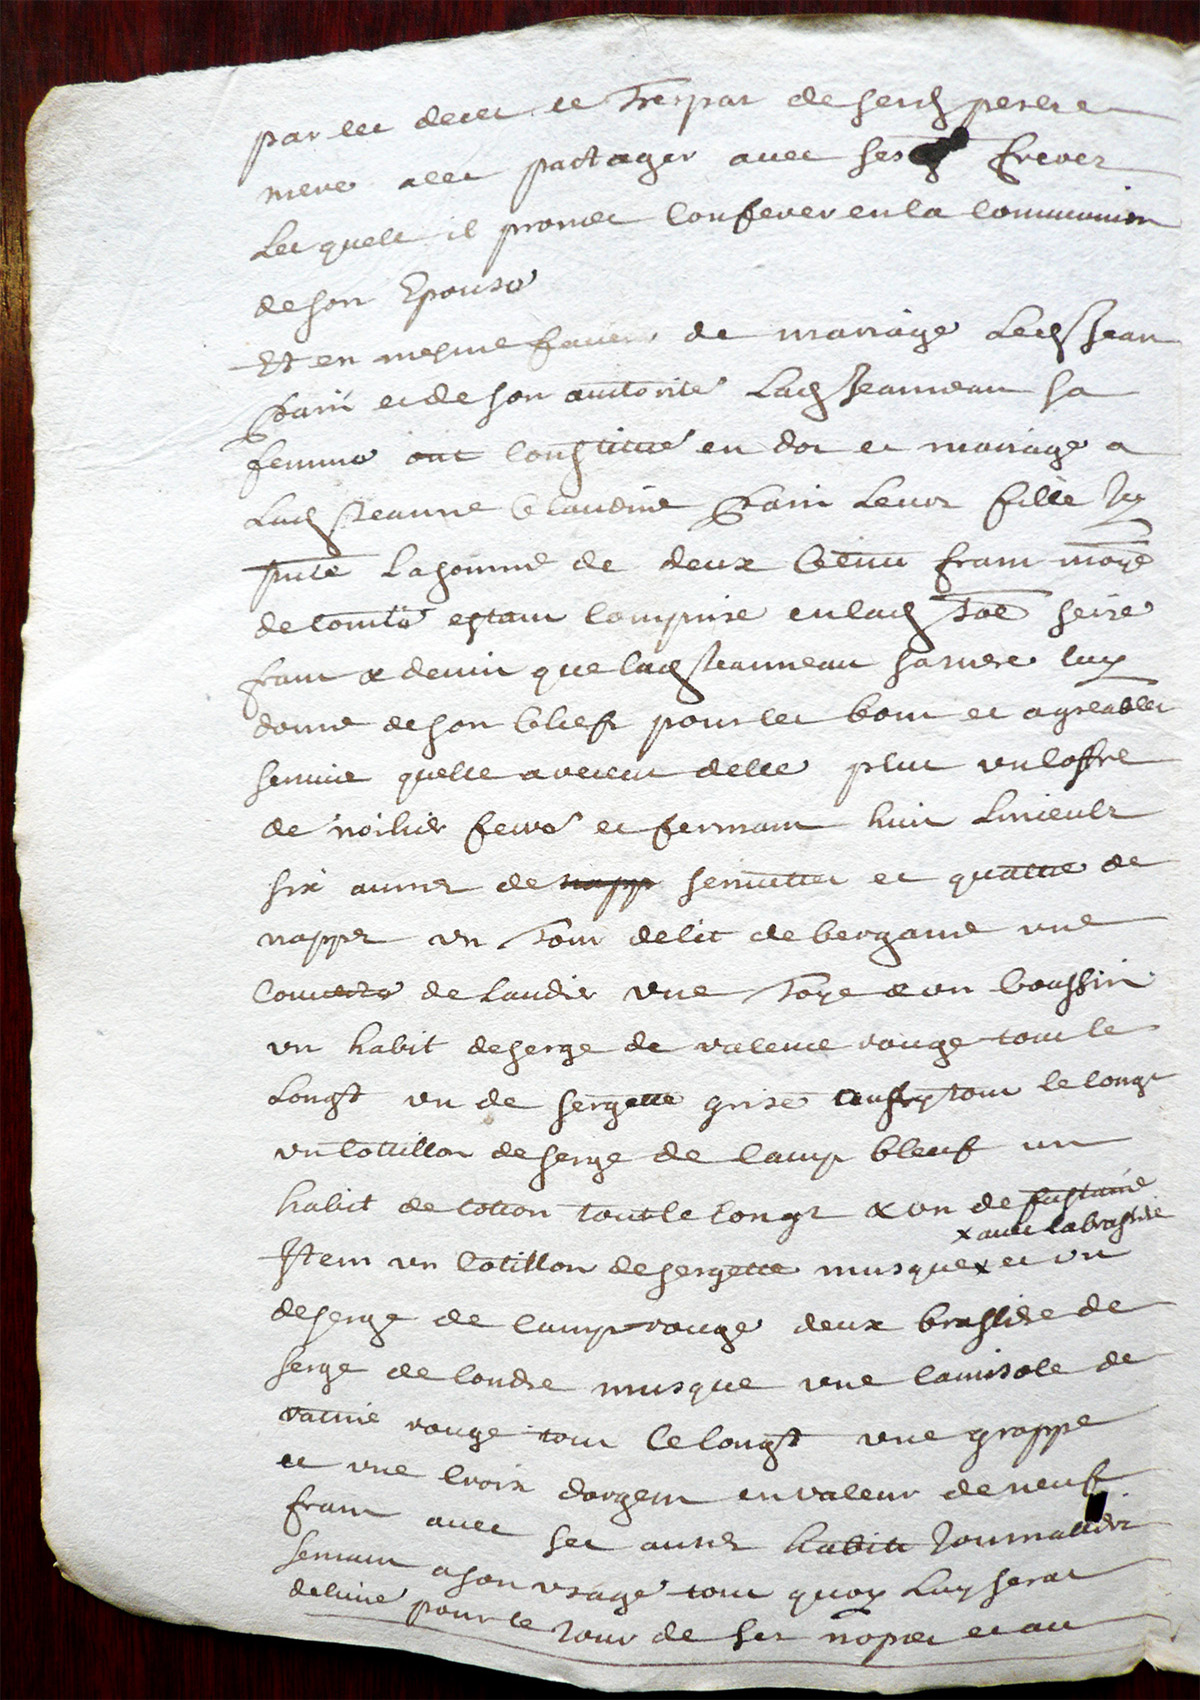 par les deces et Trespas de sesd pere et
mere alec partager avec ses freres
Lesquels il promet conferer en la communion
de son Epouse
Et en mesme faveur de mariage Led Jean
et de son auctorite Lad Jeanneau sa
femme ont constitue en dot et mariage a
Lad Jeanne Claudine Leur fille Icy
pnte La somme de deux Cent franc monoye
de comte estant comprise en lad soe seize
franc & demi que lad Jeanneau sa mere luy
donne de son Chef pour les bons et agreables
service quelle a receut delle plus un coffre
de noihier ferre et fermant huit Linceulx
six aunes de serviettes et quattre de
nappes un Tour de lit de bergame une
Couverte de Landier une Toye & un coussin
un habit de serge de valence rouge tout le
Longt un de sergette grise tout le longt
un Cotillon de serge de camp bleuf un
habit de cotton tout le longt & un de fustaine
x avec la brassire
Item un Cotillon de sergette musque x et un
de serge de camp rouge deux brassire de
serge de londre musque une camisole de
ratine rouge tout Le longt une grappe
et une croix dargent en valeur de neuf
franc avec ses autres habits Journalliers
servant a son usage tout quoy Luy serat
delivre pour le Jour de ses nopces et au